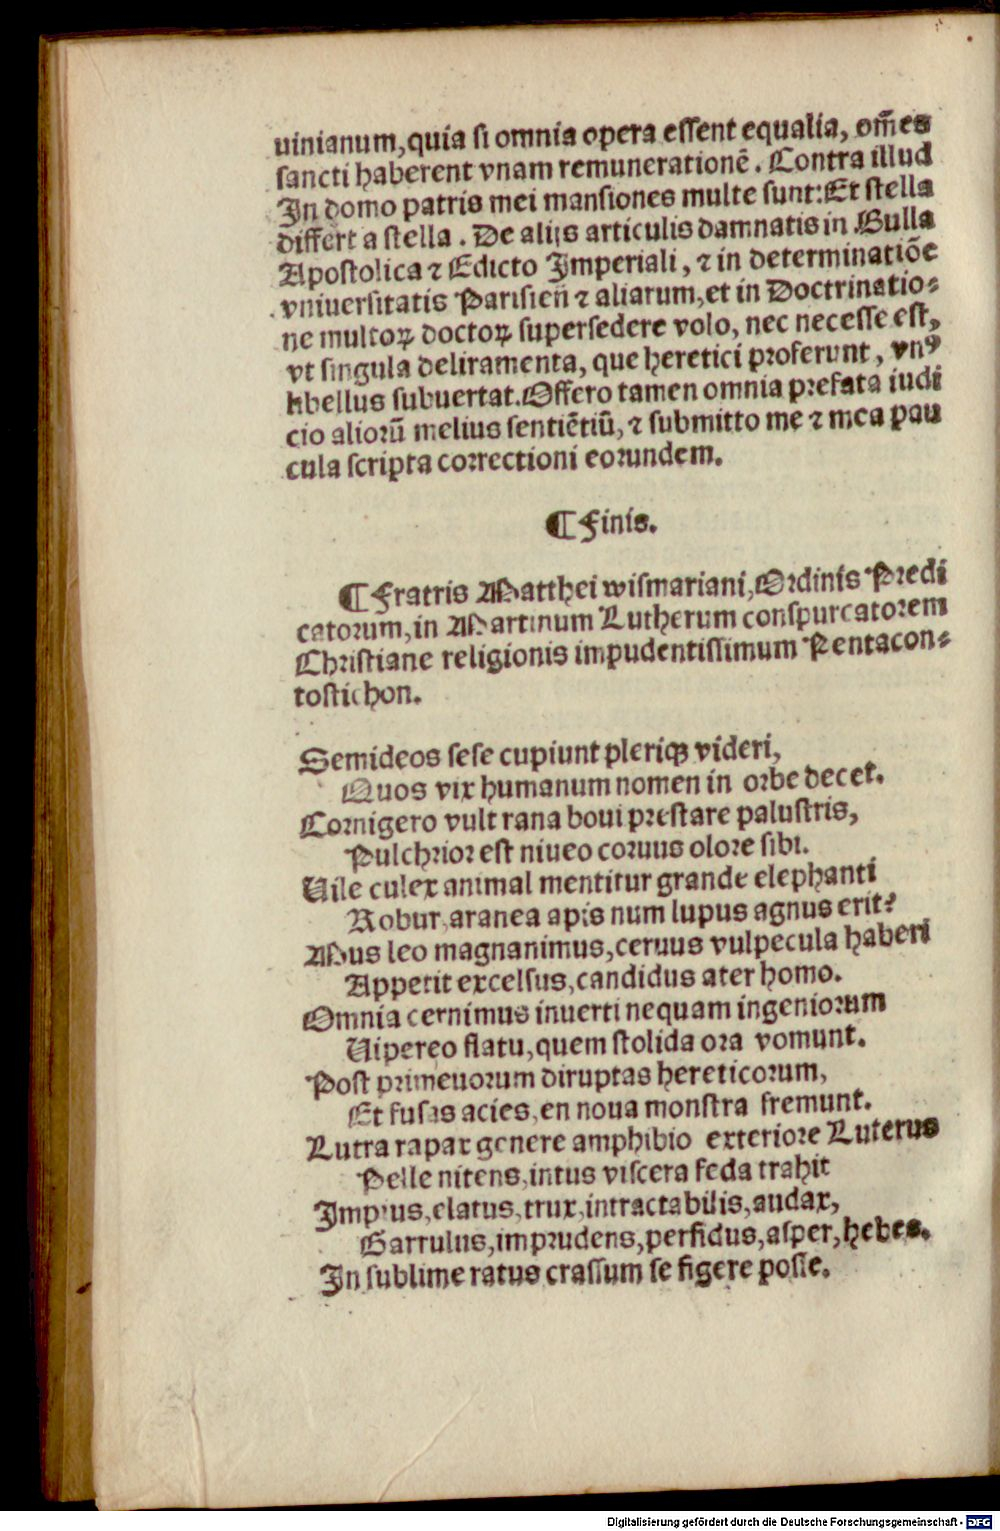 uinianum, quia si omnia opera essent equalia, om̄es
sancti haberent vnam remunerationē. Contra illud
In domo patris mei mansiones multe sunt: Et stella
differt a stella. De alijs articulis damnatis in Bulla
Apostolica ⁊ Edicto Imperiali, ⁊ in determinatiōe
vniuersitatis Parisien̄ ⁊ aliarum, et in Doctrinatio⸗
ne multoꝝ doctoꝝ supersedere volo, nec necesse est,
vt singula deliramenta, que heretici proferunt, vnꝰ
libellus subuertat. Offero tamen omnia prefata iudi
cio aliorū melius sentiētiū, ⁊ submitto me ⁊ mea pau
cula scripta correctioni eorundem.
¶ Finis.
¶ Fratris Matthei wismariani, Ordinis Predi
catorum, in Martinum Lutherum conspurcatorem
Christiane religionis impudentissimum Pentacon⸗
tostichon.
Semideos sese cupiunt pleriqꝫ videri,
Quos vix humanum nomen in orbe decet.
Cornigero vult rana boui prestare palustris,
Pulchrior est niueo coruus olore sibi.
Uile culex animal mentitur grande elephanti
Robur, aranea apis num lupus agnus erit?
Mus leo magnanimus, ceruus vulpecula haberi
Appetit excelsus, candidus ater homo.
Omnia cernimus inuerti nequam ingeniorum
Uipereo flatu, quem stolida ora vomunt.
Post primeuorum diruptas hereticorum,
Et fusas acies, en noua monstra fremunt.
Lutra rapax genere amphibio exteriore Luterus
Pelle nitens, intus viscera feda trahit
Impius, elatus, trux, intractabilis, audax,
Garrulus, imprudens, perfidus, asper, hebes.
In sublime ratus crassum se figere posse.
Digitalisierung gefördert durch die Deutsche Forschungsgemeinschaft - DFG